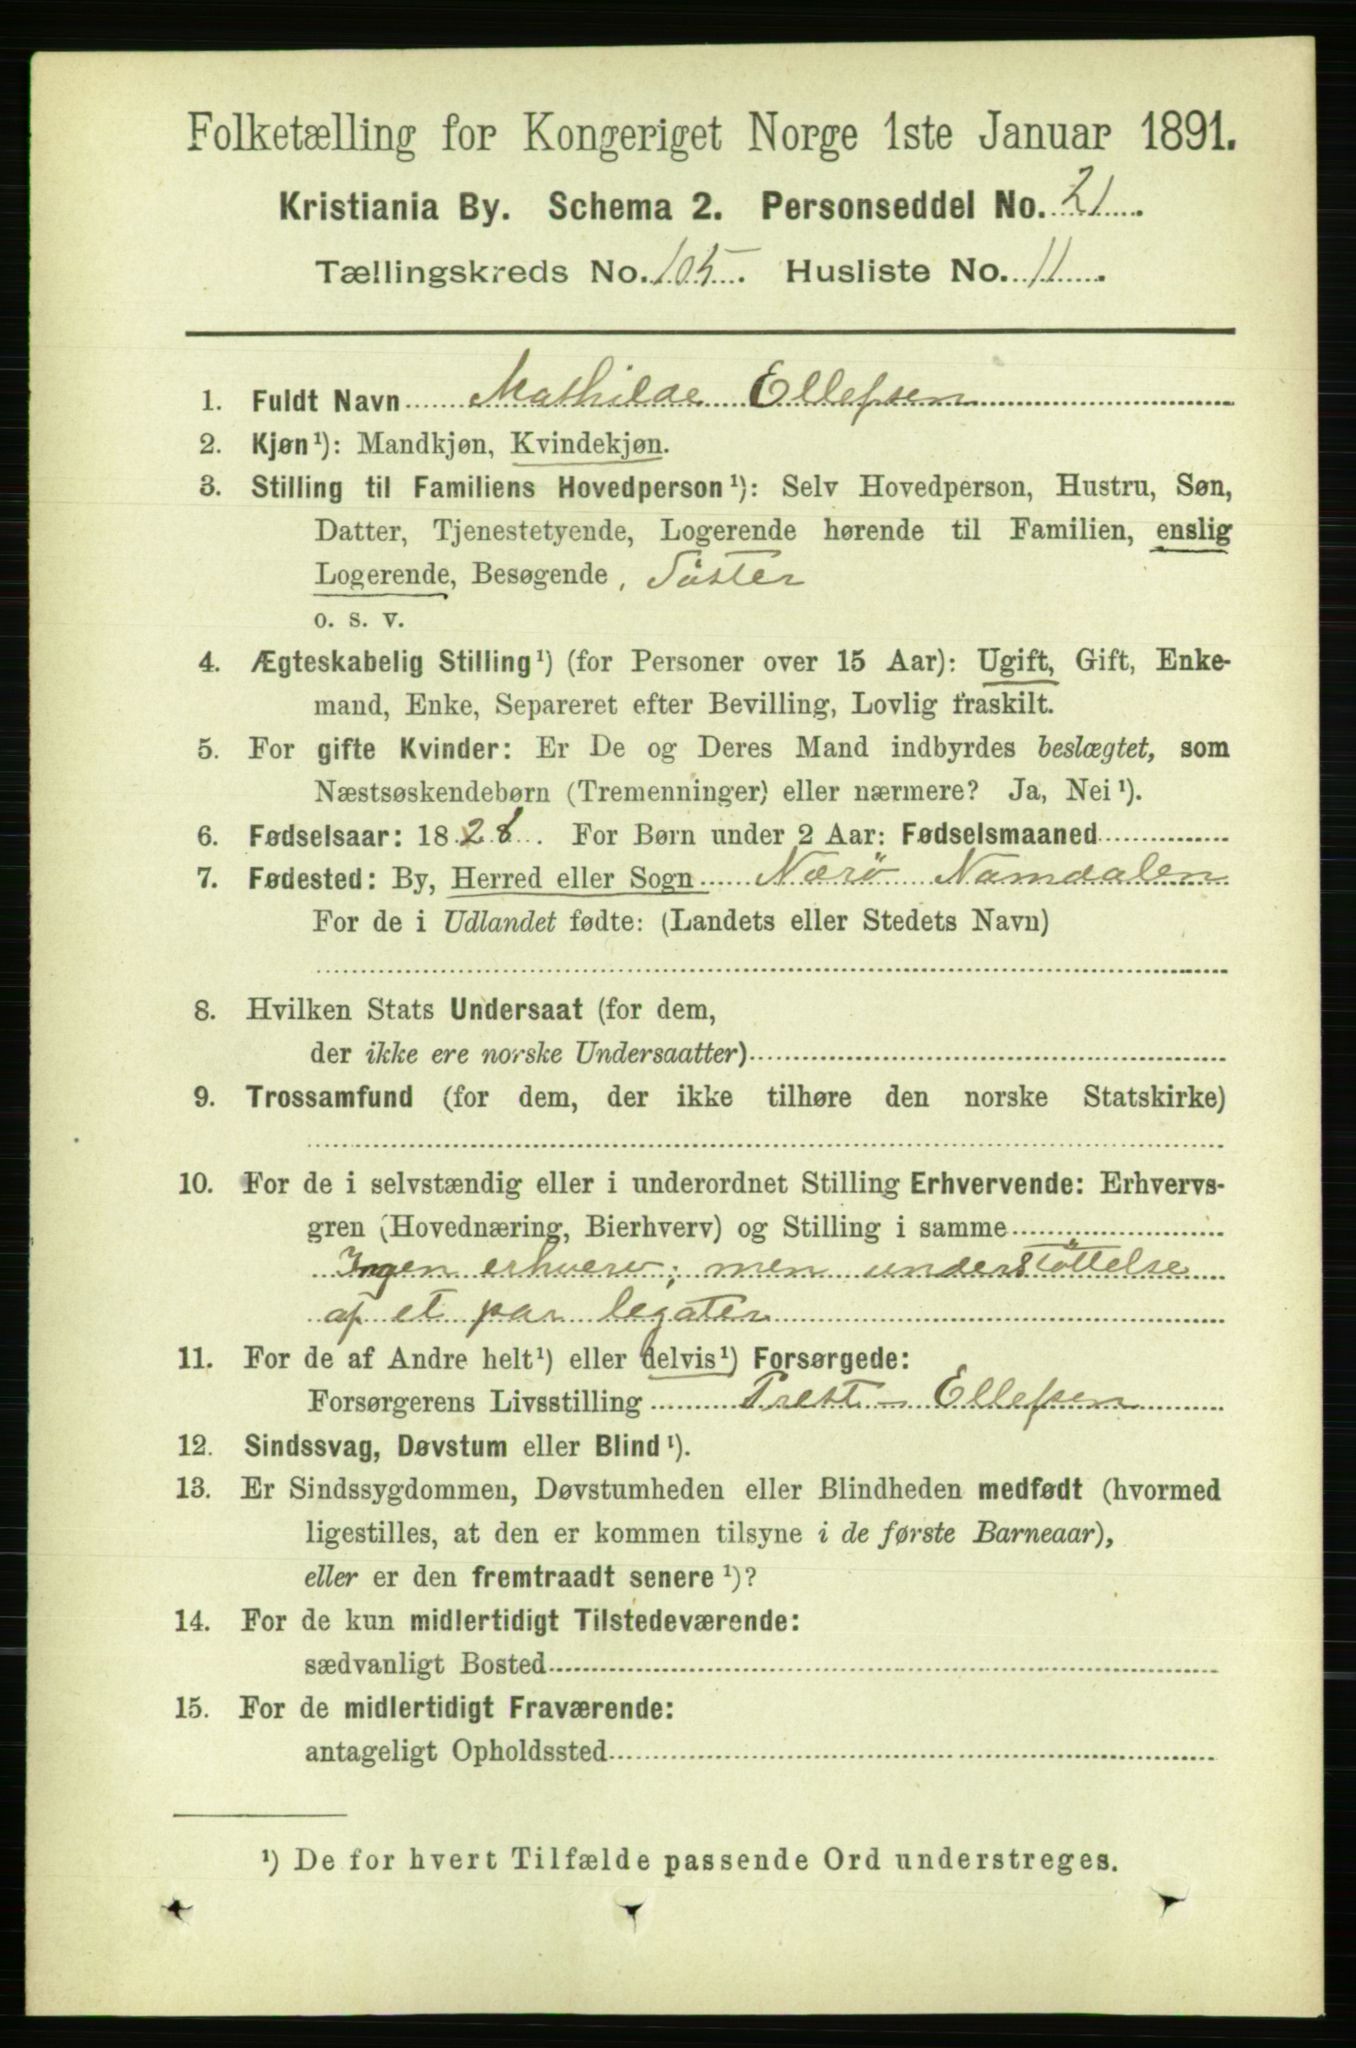 Folketælling for Kongeriget Norge 1ste Januar 1891.
Kristiania By. Schema 2. Personseddel No. 21.
Tællingskreds No. 105. Husliste No. 11.
1. Fuldt Navn Mathilde Ellefsen
2. Kjøn¹): Mandkjøn, Kvindekjøn.
3. Stilling til Familiens Hovedperson¹): Selv Hovedperson, Hustru, Søn,
Datter, Tjenestetyende, Logerende hørende til Familien, enslig
Logerende, Besøgende, Söster
o. s. v.
4. Ægteskabelig Stilling¹) (for Personer over 15 Aar): Ugift, Gift, Enke-
mand, Enke, Separeret efter Bevilling, Lovlig fraskilt.
5. For gifte Kvinder: Er De og Deres Mand indbyrdes beslægtet, som
Næstsøskendebørn (Tremenninger) eller nærmere? Ja, Nei¹).
6. Fødselsaar: 1828. For Børn under 2 Aar: Fødselsmaaned
7. Fødested: By, Herred eller Sogn Nærö Namdalen
For de i Udlandet fødte: (Landets eller Stedets Navn)
8. Hvilken Stats Undersaat (for dem,
der ikke ere norske Undersaatter)
9. Trossamfund (for dem, der ikke tilhøre den norske Statskirke)
10. For de i selvstændig eller i underordnet Stilling Erhvervende: Erhvervs-
gren (Hovednæring, Bierhverv) og Stilling i samme
Ingen erhverv; men understöttelse
af et par legater
11. For de af Andre helt¹) eller delvis¹) Forsørgede:
Forsørgerens Livsstilling Prest - Ellefsen
12. Sindssvag, Døvstum eller Blind¹).
13. Er Sindssygdommen, Døvstumheden eller Blindheden medfødt (hvormed
ligestilles, at den er kommen tilsyne i de første Barneaar),
eller er den fremtraadt senere¹)?
14. For de kun midlertidigt Tilstedeværende:
sædvanligt Bosted
15. For de midlertidigt Fraværende:
antageligt Opholdssted
¹) De for hvert Tilfælde passende Ord understreges.